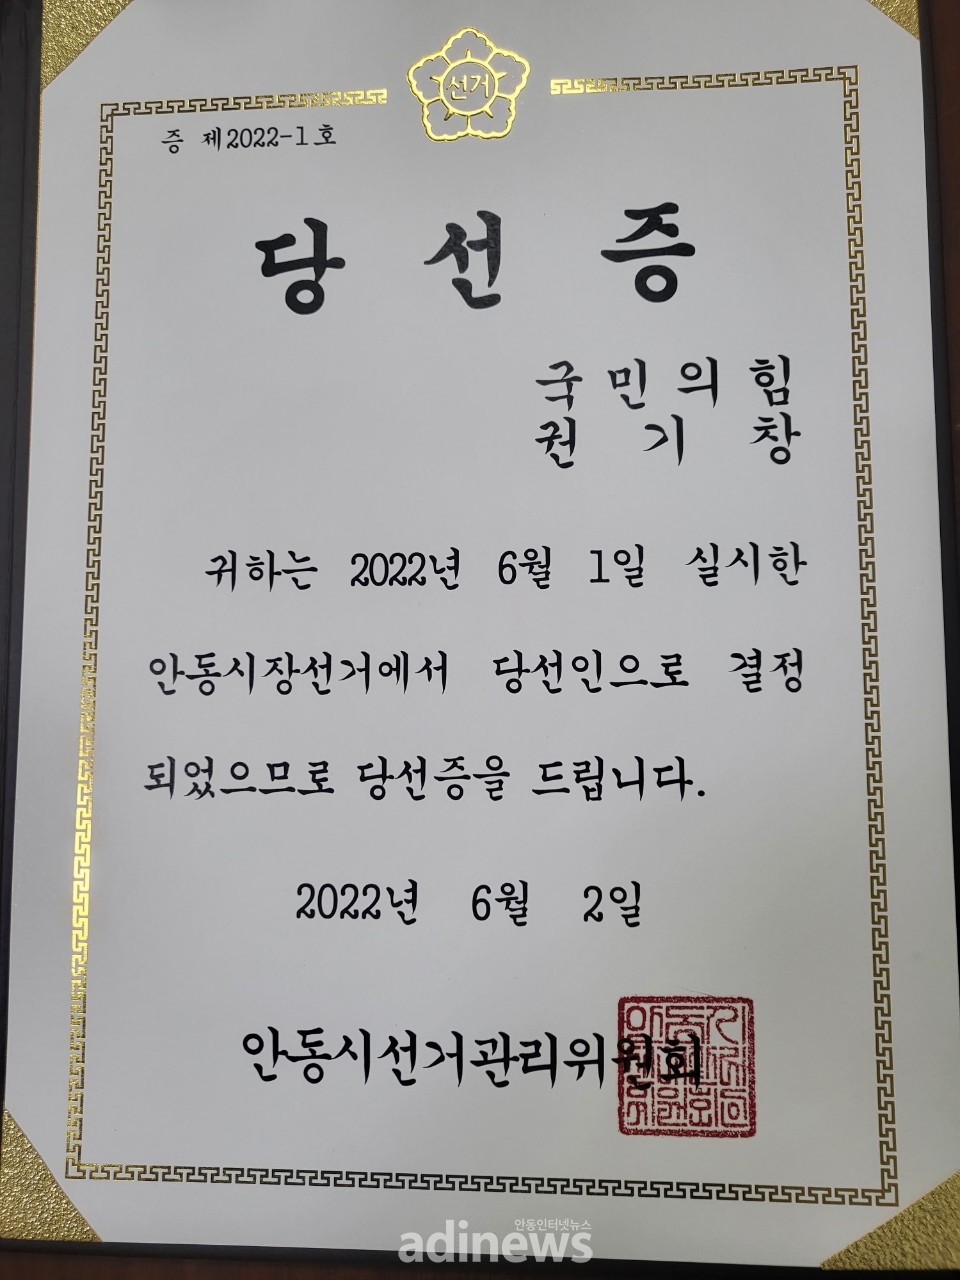 선거
증 제2022-1호
당 선 증
국민의힘
권 기 창
귀하는 2022년 6월 1일 실시한
안동시장선거에서 당선인으로 결정
되었으므로 당선증을 드립니다.
2022년 6월 2일
안동시선거관리위원회
안동인터넷뉴스
adinews